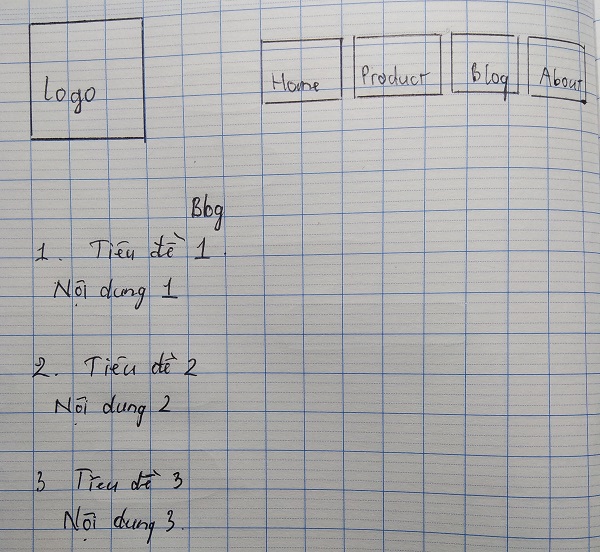 Logo
Home Product Blog About
Blog
1. Tiêu đề 1.
Nội dung 1
2. Tiêu đề 2
Nội dung 2
3 Tiêu đề 3
Nội dung 3.